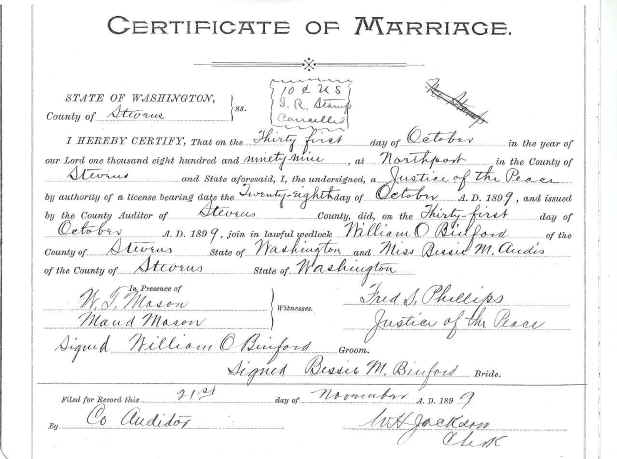 CERTIFICATE OF MARRIAGE.
10 ¢ U S
I. R. Stamp
Cancelled
STATE OF WASHINGTON,
County of Stevens } ss.
I HEREBY CERTIFY, That on the Thirty first day of October in the year of
our Lord one thousand eight hundred and ninety nine, at Northport in the County of
Stevens and State aforesaid, I, the undersigned, a Justice of the Peace
by authority of a license bearing date the Twenty-eighth day of October A. D. 1899, and issued
by the County Auditor of Stevens County, did, on the Thirty-first day of
October A. D. 1899, join in lawful wedlock William O Binford of the
County of Stevens State of Washington and Miss Bessie M. Audis
of the County of Stevens State of Washington
In Presence of
W. T. Mason
Maud Mason } Witnesses.
Fred S. Phillips
Justice of the Peace
Signed William O Binford Groom.
Signed Bessie M. Binford Bride.
Filed for Record this 21st day of November A. D. 1899
By Co Auditor W H Jackson